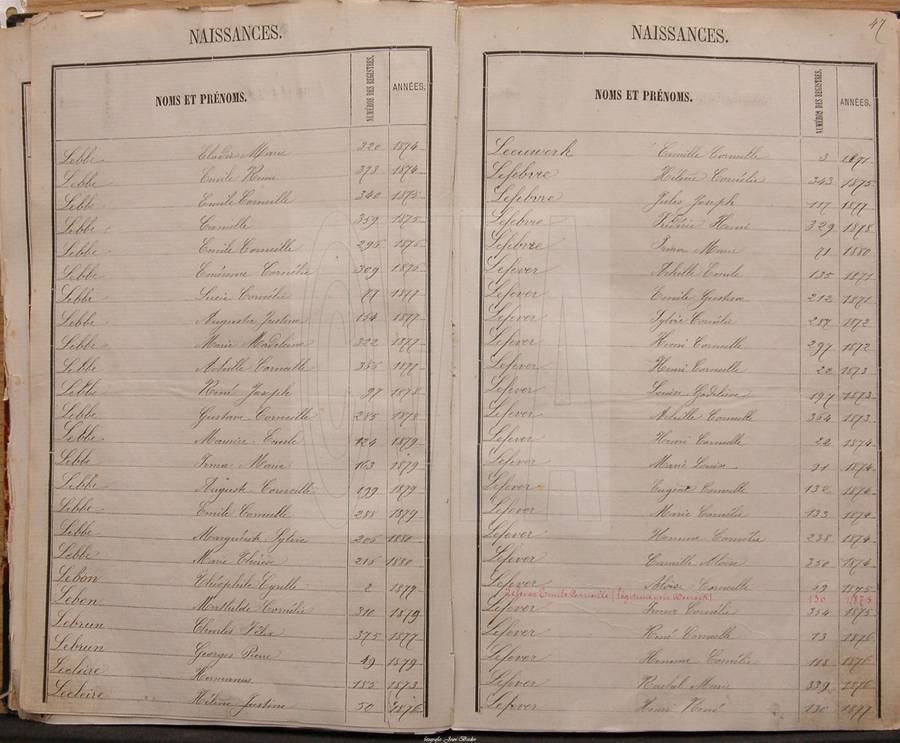 NAISSANCES.
NOMS ET PRÉNOMS. NUMÉROS DES REGISTRES. ANNÉES.
Lebbe Elodie Marie 320 1874
Lebbe Emile Rene 373 1874
Lebbe Emile Corneille 340 1875
Lebbe Camille 359 1875
Lebbe Emile Corneille 295 1876
Lebbe Cornélie 309 1876
Lebbe Lucie Cornélie 71 1877
Lebbe Augusta Justine 154 1877
Lebbe Marie Madeleine 322 1877
Lebbe Achille Corneille 355 1877
Lebbe René Joseph 97 1878
Lebbe Gustave Corneille 285 1878
Lebbe Maurice Emile 124 1879
Lebbe Irma Marie 163 1879
Lebbe Auguste Corneille 199 1879
Lebbe Emile Corneille 288 1879
Lebbe Marguerite Sylvie 205 1880
Lebbe Marie Elvire 215 1880
Lebon Théophile Cyrille 2 1879
Lebon Mathilde Cornélie 310 1879
Lebrun Charles Félix 375 1877
Lebrun Georges Pierre 49 1879
Leclaire Hermanus 185 1873
Leclaire Hélène Justine 50 1876
47
NAISSANCES.
NOMS ET PRÉNOMS. NUMÉROS DES REGISTRES. ANNÉES.
Leeuwerk Camille Corneille 3 1871
Lefebvre Hélène Cornélie 343 1875
Lefebvre Jules Joseph 117 1877
Lefebvre Henri 329 1878
Lefebvre Irma Marie 71 1880
Lefever Achille Emile 135 1871
Lefever Emile Gustave 212 1871
Lefever Sylvie Cornélie 287 1872
Lefever Henri Corneille 297 1872
Lefever Henri Corneille 22 1873
Lefever Louise 197 1873
Lefever Achille Corneille 364 1873
Lefever Henri Corneille 22 1874
Lefever Marie Louise 91 1874
Lefever Eugène Corneille 132 1874
Lefever Marie Cornélie 133 1874
Lefever Hemma Cornélie 238 1874
Lefever Camille Aloïse 350 1874
Lefever Aloïse Corneille 59 1875
Lefever Emile Corneille (légitimé 136 1875
Lefever Irma Cornélie 354 1875
Lefever René Corneille 73 1876
Lefever Hemma Cornélie 118 1876
Lefever Marie 339 1876
Lefever Henri René 130 1877